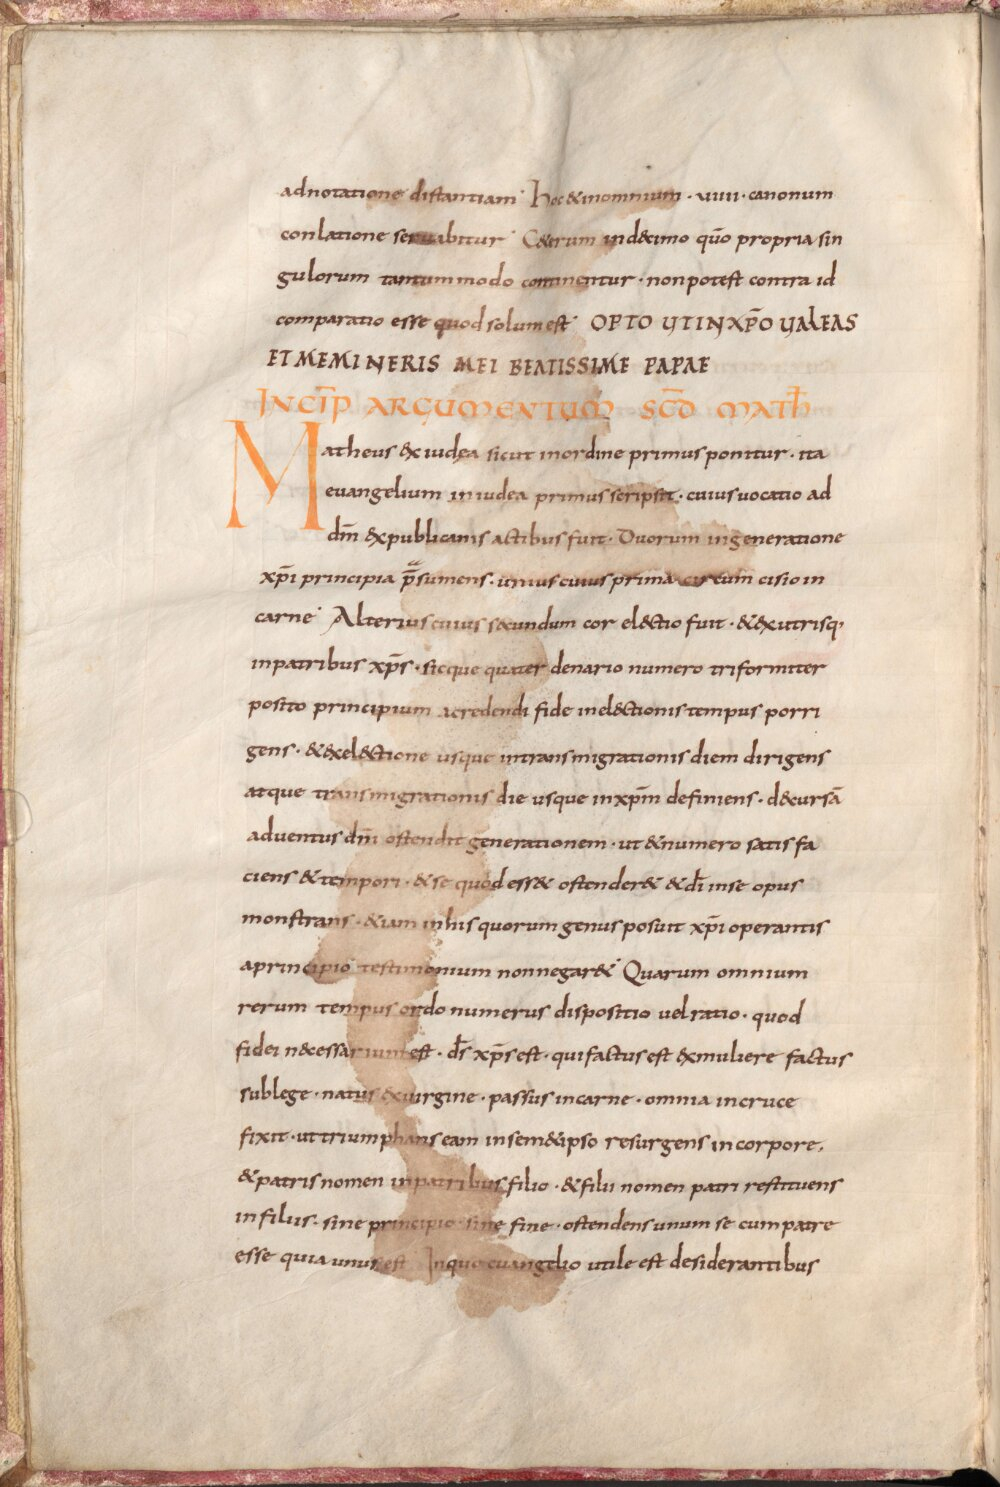 adnotatione distantiam· Hoc &inomnium · viiii · canonum
conlatione servabitur· C&erum ind&cimo quō propria sin
gulorum tantummodo continentur · nonpotest contra id
comparatio esse quod solum est· OPTO UTINXP̄O UALEAS
ET MEMINERIS MEI BEATISSIME PAPAE
INCIP̄ ARGUMENTUM SCD̄ MATH̄
Matheus &xiudęa sicut inordine primus ponitur · ita
evangelium iniudea primus scripsit · cuius vocatio ad
dm̄ &xpublicanis actibus fuit · Duorum ingeneratione
xp̄i principia p̄sumens · unius cuius prima circum cisio in
carne· Alterius cuius s&cundum cor el&ctio fuit · &&xutrisq·
inpatribus xp̄s · sicque quater denario numero triformiter
posito principium acredendi fide inel&ctionis tempus porri
gens · &&xel&ctione usque intransmigrationis diem dirigens
atque transmigrationis die usque inxp̄m definiens · d&cursā
adventus dm̄ ostendit generationem · ut &numero satisfa
ciens &tempori · &se quod ess& ostender& &dī inse opus
monstrans · &iam inhis quorum genus posuit xp̄i operantis
aprincipio testimonium nonnegar&· Quarum omnium
rerum tempus ordo numerus dispositio vel ratio · quod
fidei n&cessarium est · ds̄ xp̄s est · qui factus est &xmuliere factus
sublege · natus &xvirgine · passus incarne · omnia incruce
fixit · ut triumphans eam insem&ipso resurgens incorpore,
&patris nomen inpatribus filio · &filii nomen patri restituens
infiliis · sine principio · sine fine · ostendens unum se cumpatre
esse quia unus est· Inquo evangelio utile est desiderantibus